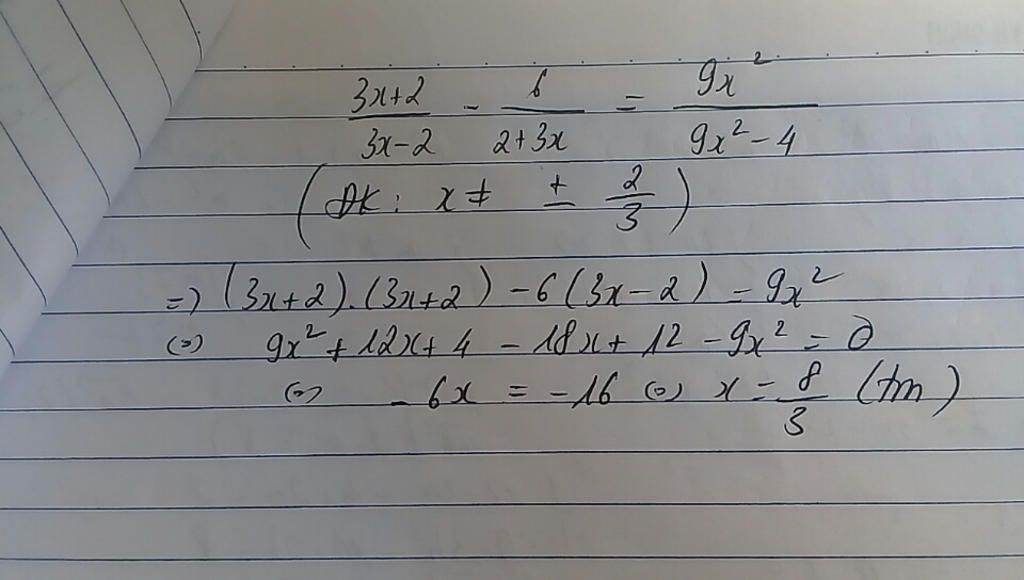 (3x+2)/(3x-2) - 6/(2+3x) = 9x²/(9x²-4)
(ĐK: x ≠ ± 2/3)
=> (3x+2).(3x+2) - 6(3x-2) = 9x²
<=> 9x² + 12x + 4 - 18x + 12 - 9x² = 0
<=> -6x = -16 <=> x = 8/3 (tm)